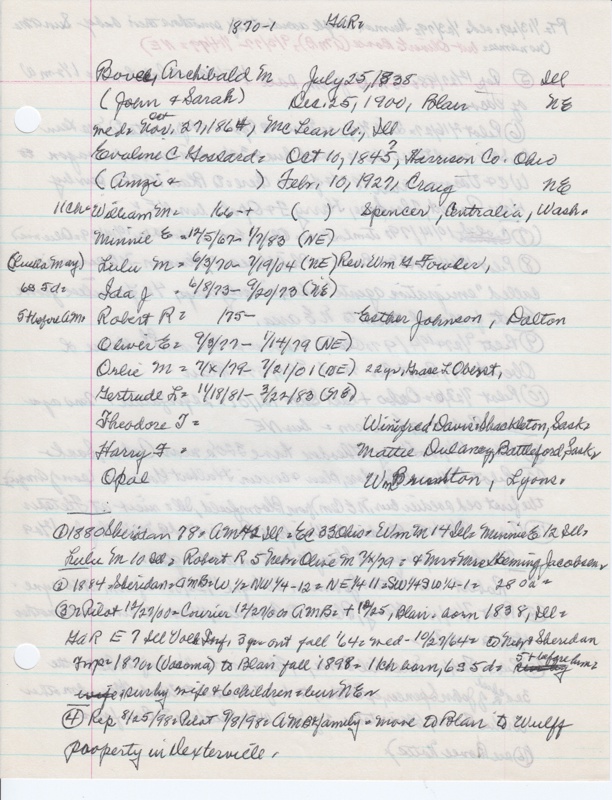 1870-1 GAR=
Bovee, Archibald M July 25, 1838 Ill
(John & Sarah) Dec. 25, 1900, Blair NE
med= Oct Nov. 27, 1864, McLean Co., Ill
Evaline C Gossard= Oct 10, 1845?, Harrison Co. Ohio
(Amzi & ) Febr. 10, 1927, Craig NE
11 Ch= William M= 166-+ ( ) Spencer, Centralia, Wash.
Minnie E = 12/5/67- 1/7/83 (NE)
(Luella May) Lulu M = 6/3/70- 7/19/04 (NE) Rev. Wm G Fowler,
6s 5d= Ida J = 6/8/73- 9/20/73 (NE)
5+ before AM= Robert R= 175- Esther Johnson, Dalton
Oliver E= 9/3/77- 1/14/79 (NE)
Orlie M= 7/X/79- 7/21/01 (NE) 22 yr, Grace L Oberst,
Gertrude L= 11/18/81- 3/22/83 (NE)
Theodore T= Winifred Davis Shackleton, Sask=
Harry F= Mattie Dulaney, Battleford, Sask
Opal Wm Brunton, Lyons.
① 1880 Sheridan 78= AM 42 Ill= EC 33 Ohio= Wm M 14 Ill= Minnie E 12 Ill=
Lulu M 10 Ill= Robert R 5 Neb= Olive M 7/X/79= & Mr & Mrs Heming Jacobsen=
② 1884= Sheridan= AMB= W 1/2 NW 1/4-12= NE 1/4 11= SW 1/4 SW 1/4-1= 280a=
③ Pilot 12/27/00= Courier 12/27/00= AMB= + 12/25, Blair= born 1838, Ill=
GAR E 7 Ill Vol Inf, 3 yr= out fall '64= med- 10/27/64= to Neb & Sheridan
Twp= 1870= (Vacoma) to Blair fall 1898= 11 ch born, 6s 5d= 5+ before him=
surby wife & 6 children= bur NE=
④ Rep 8/25/98= Pilot 9/8/98= AMB & family= move to Blair to Wulff
property in Dexterville.